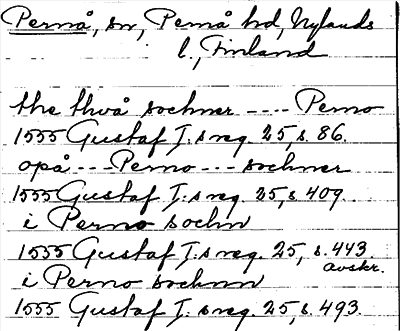 Pernå, sn, Pernå hd, Nylands
l., Finland
the thvå sochner ---- Perno
1555 Gustaf I:s reg. 25, s. 86.
opå --- Perno --- sochner
1555 Gustaf I:s reg. 25, s 409.
i Perno sochn
1555 Gustaf I:s reg. 25, s. 443
avskr.
i Perno sochnn
1555 Gustaf I: s reg. 25, s. 493.